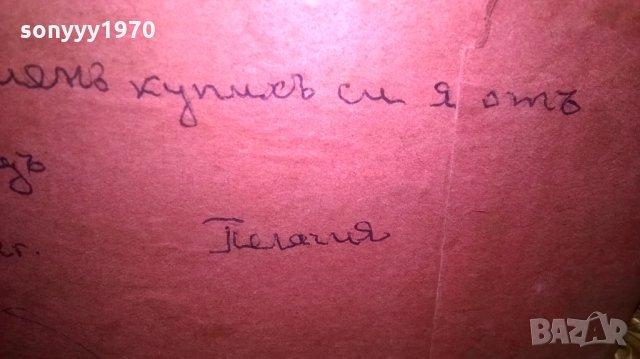 sonyyy1970
купихъ си я отъ
г.
Пелагия
BAZAR